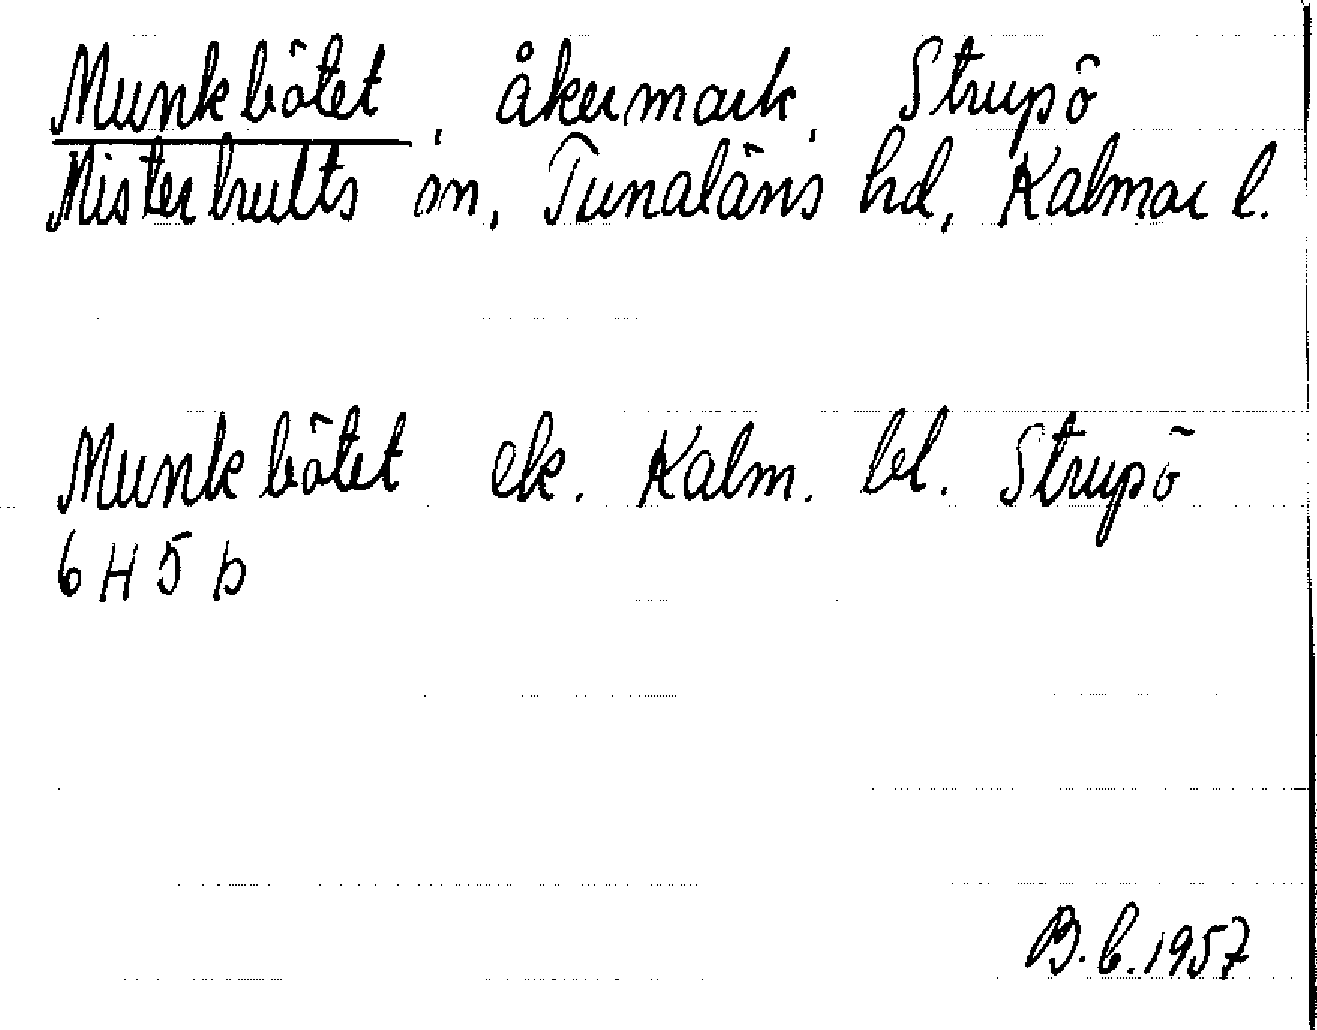 Munkbötet, åkermark, Strupö
Misterhults sn, Tunaläns hd, Kalmar l.
Munkbötet ek. Kalm. bl. Strupö
6 H 5 b
B.b.1957